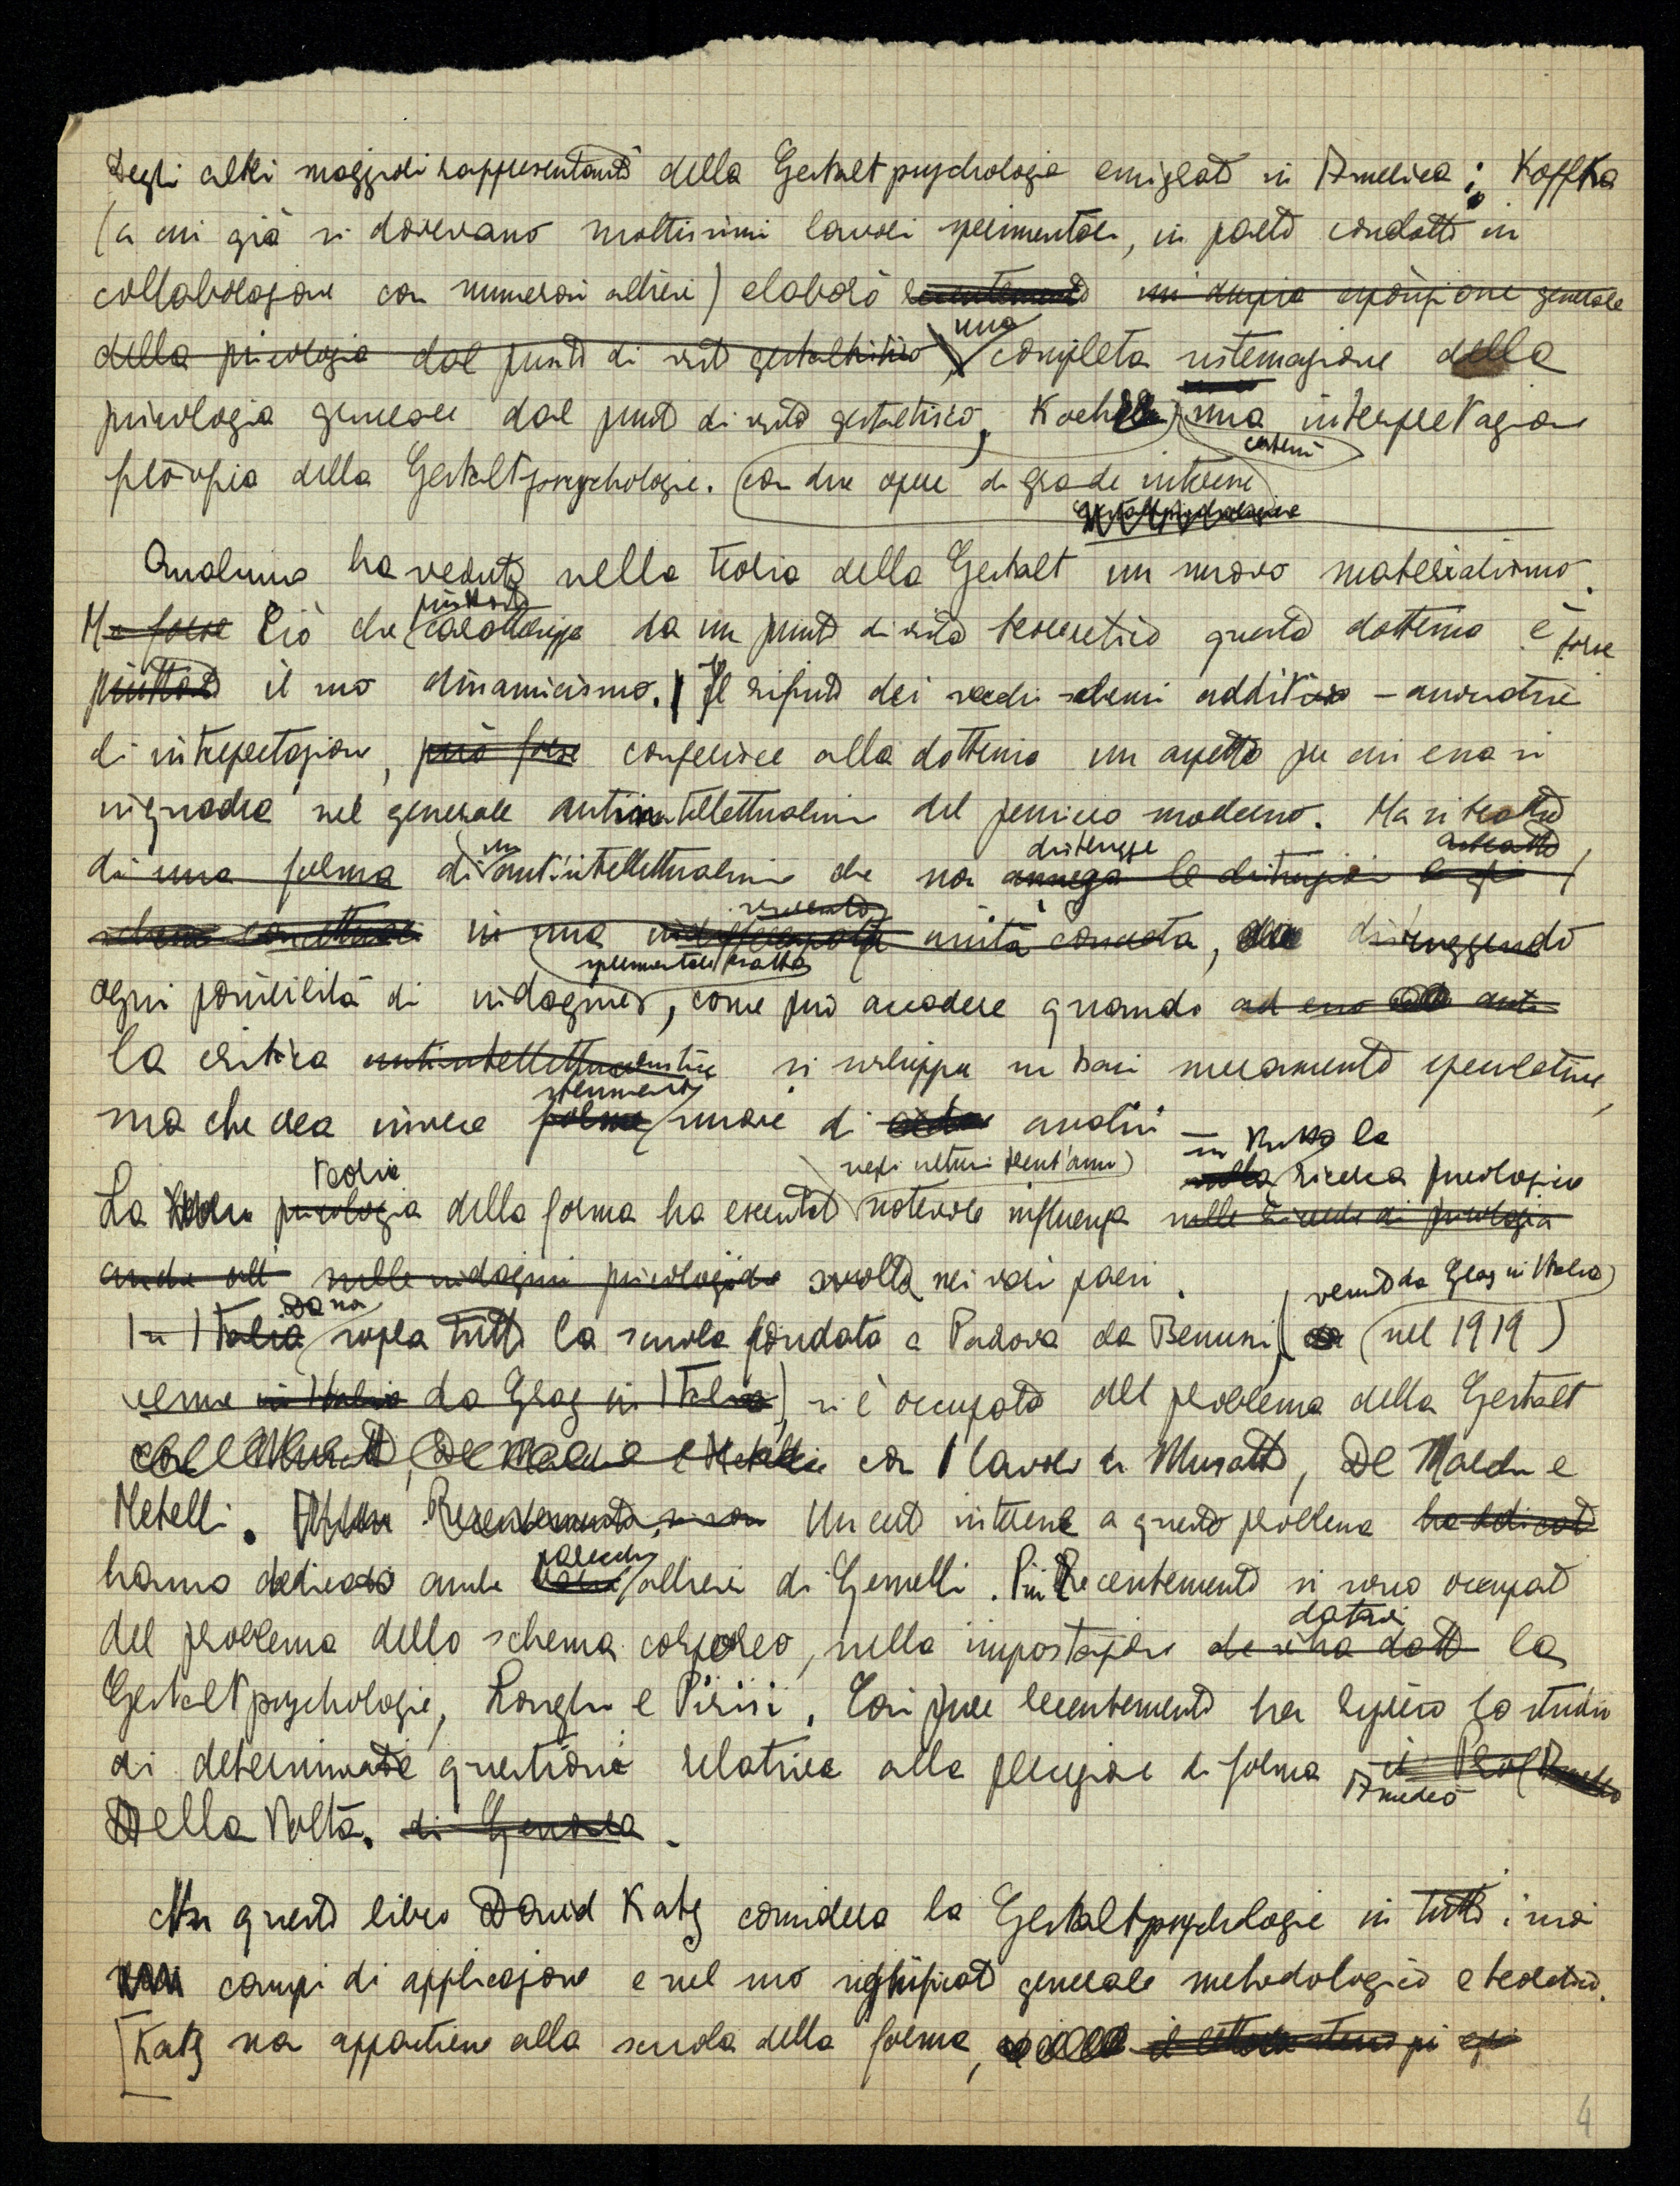 Degli altri maggiori rappresentanti della Gestaltpsychologie emigrati in America: Koffka
(a cui già si dovevano moltissimi lavori sperimentali, in parte condotti in
collaborazione con numerosi allievi) elaborò recentemente un'ampia esposizione generale
della psicologia dal punto di vista gestaltistico, una completa sistemazione della
psicologia generale dal punto di vista gestaltistico, Koehler, una interpretazione
propria della Gestaltpsychologie. con due opere di grande interesse
Qualcuno ha veduto nella teoria della Gestalt un nuovo materialismo.
Ma forse Ciò che piuttosto caratterizza da un punto di vista teoretico questa dottrina è forse
piuttosto il suo dinamicismo. Il rifiuto dei vecchi schemi additivo - associativi
di interpretazione, però forse conferisce alla dottrina un aspetto per cui essa si
inquadra nel generale antiintellettualismo del pensiero moderno. Ma si tratta
di una forma di un antiintellettualismo che non distrugge annega le distinzioni
in una unità concreta, distruggendo
ogni possibilità di indagine sperimentale esatta, come può accadere quando ad esso
la critica antiintellettualistica si sviluppa su basi meramente speculative,
ma che crea invece forme strumenti nuove di analisi
La psicologia teoria della forma ha esercitato (negli ultimi vent'anni) notevole influenza in tutta la ricerca psicologica nelle ricerche di psicologia
anche nelle indagini psicologiche svolta nei vari paesi.
In Italia Da noi sopra tutto la scuola fondata a Padova da Benussi (venuto da Graz in Italia nel 1919)
venne in Italia da Graz in Italia) si è occupata del problema della Gestalt
con i lavori di Musatti, De Marchi e
Metelli. Recentemente Un certo interesse a questo problema ha dedicato
hanno dedicato anche parecchi allievi di Gemelli. Più Recentemente si sono occupati
del problema dello schema corporeo, nella impostazione datavi la
Gestaltpsychologie, Longhi e Pirisi. Così pure recentemente ha ripreso lo studio
di determinate questioni relative alla percezione di forma il Prof Amedeo
Della Volta. di Genova.
In questo libro David Katz considera la Gestaltpsychologie in tutti i suoi
campi di applicazione e nel suo significato generale metodologico e teoretico.
[Katz non appartiene alla scuola della forma,
4